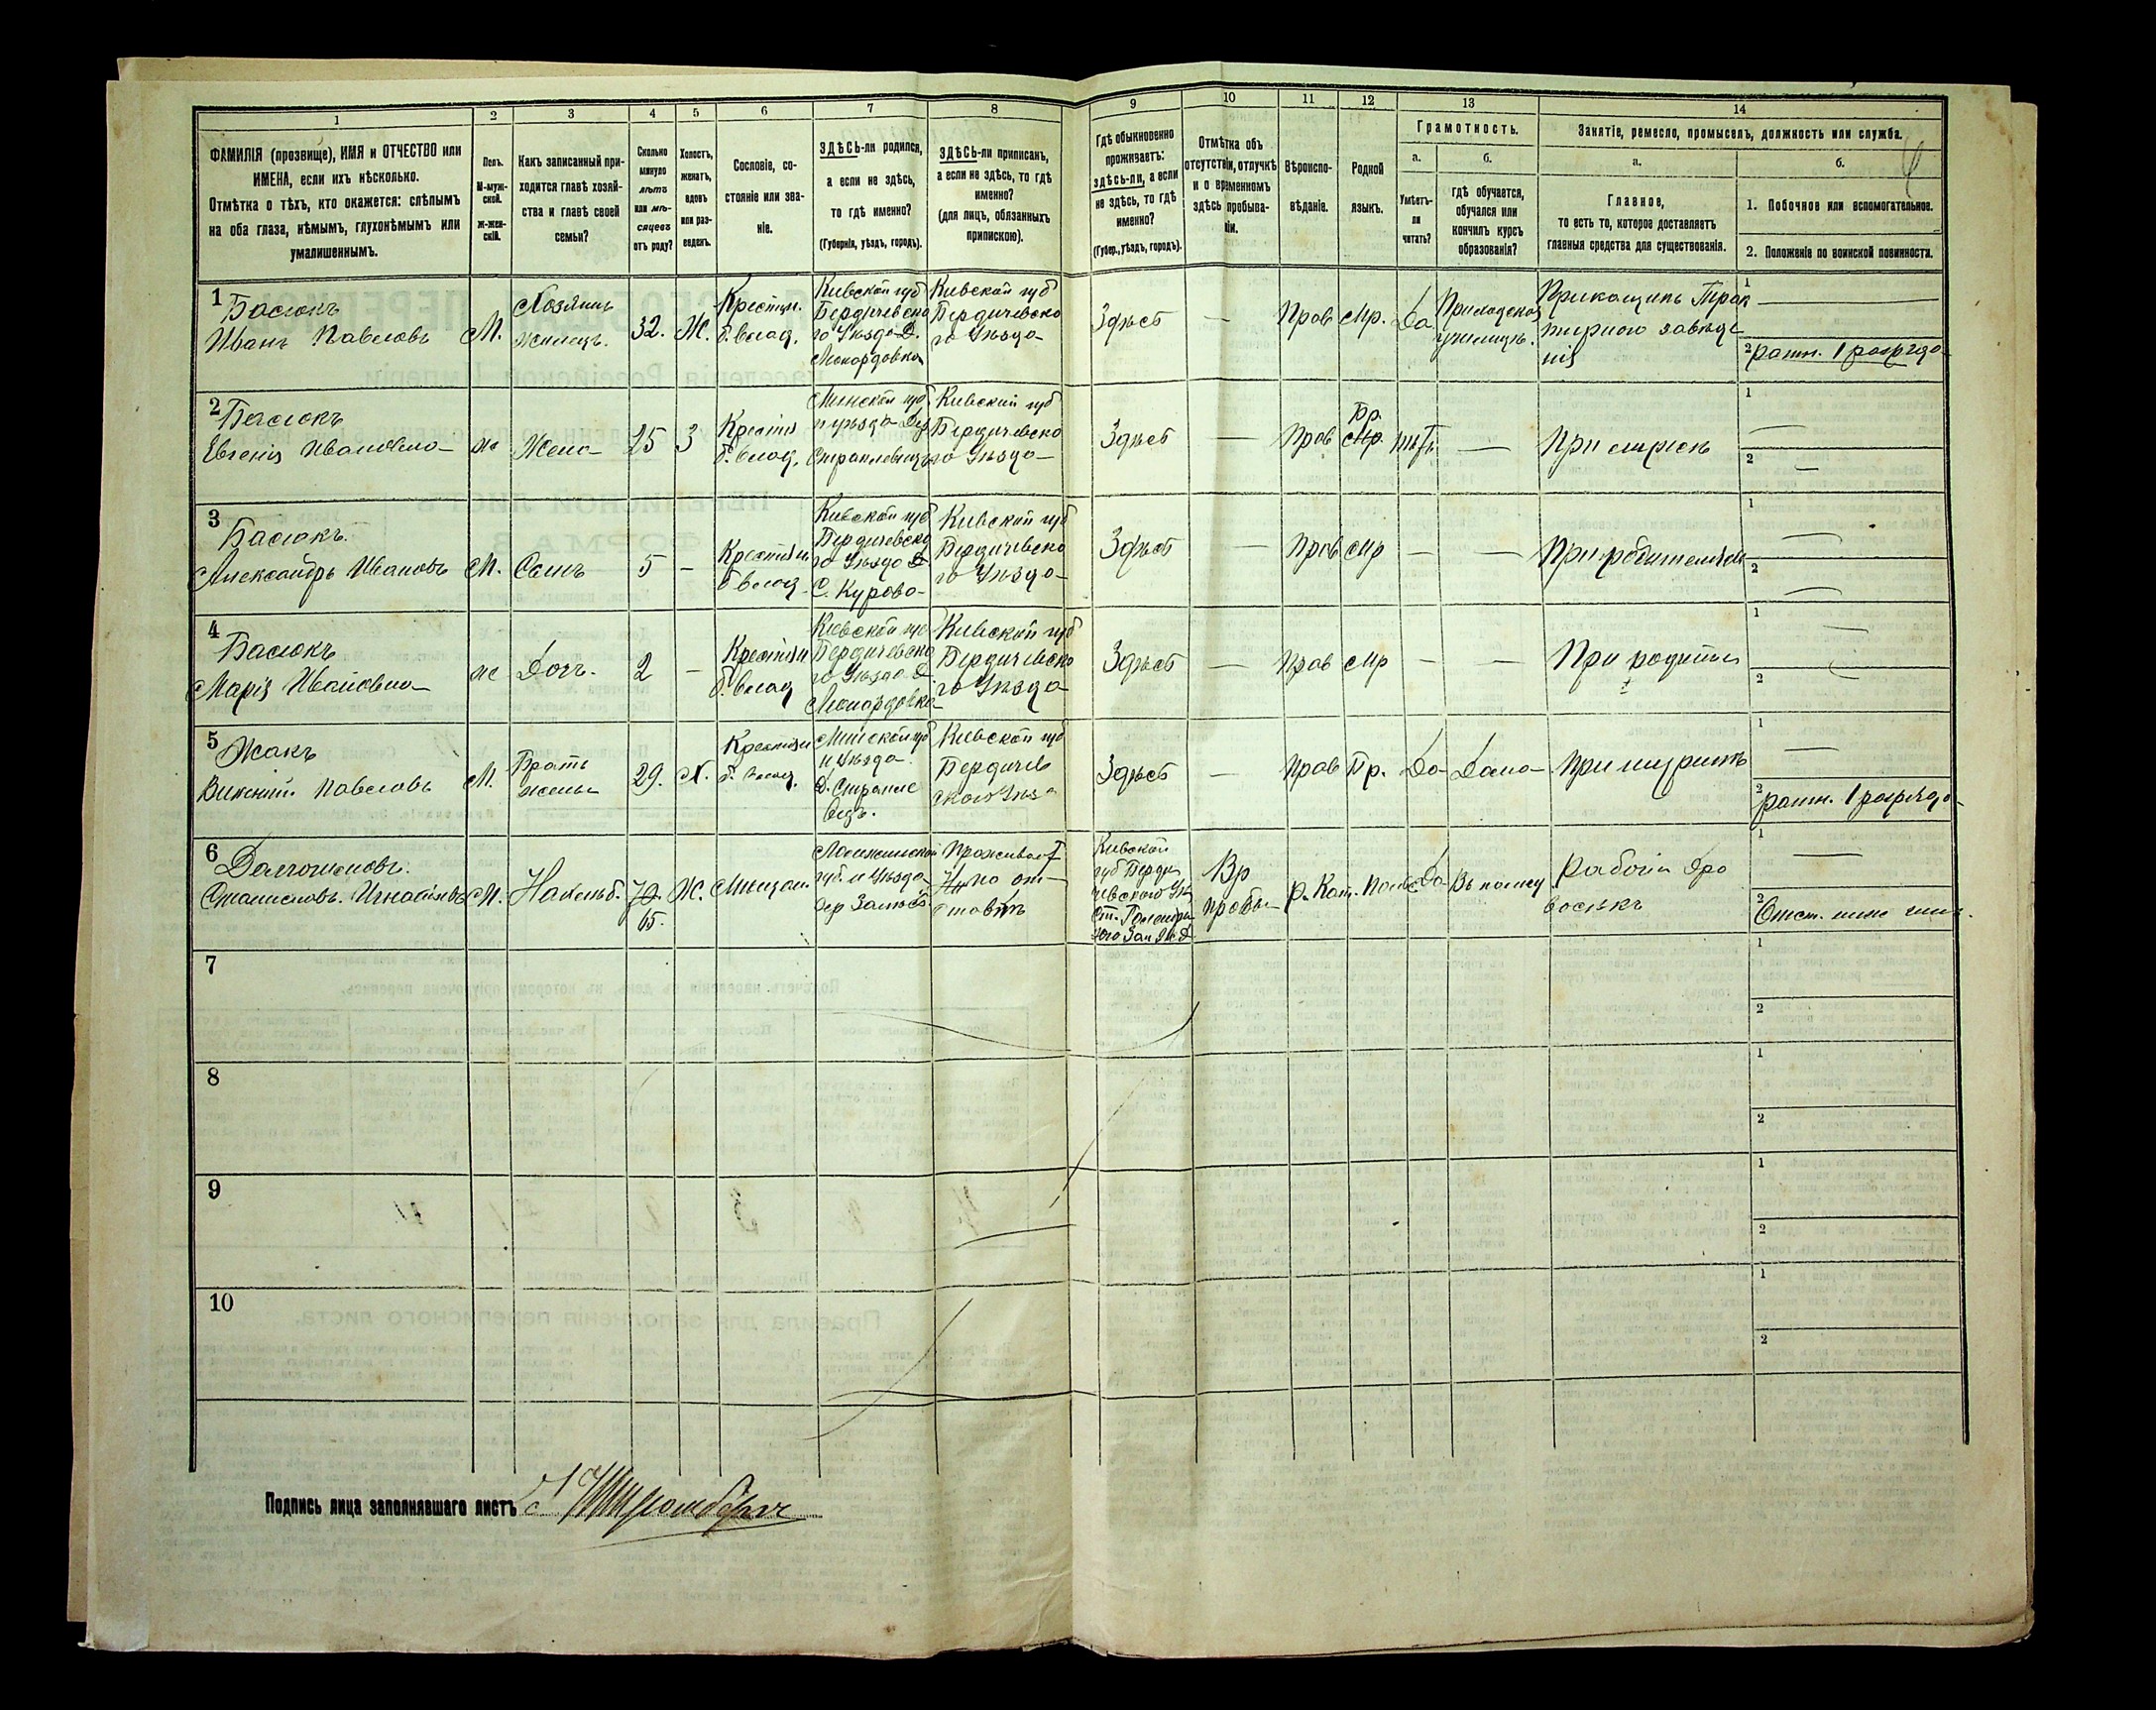 1 2 3 4 5 6 7 8 9 10 11 12 13 14
ФАМИЛІЯ (прозвище), ИМЯ и ОТЧЕСТВО или
ИМЕНА, если ихъ нѣсколько.
Отмѣтка о тѣхъ, кто окажется: слѣпымъ
на оба глаза, нѣмымъ, глухонѣмымъ или
умалишеннымъ.
Полъ.
М-муж-
ской.
Ж-жен-
скій.
Какъ записанный при-
ходится главѣ хозяй-
ства и главѣ своей
семьи?
Сколько
минуло
лѣтъ
или мѣ-
сяцевъ
отъ роду?
Холостъ,
женатъ,
вдовъ
или раз-
веденъ.
Сословіе, со-
стояніе или зва-
ніе.
ЗДѢСЬ-ли родился,
а если не здѣсь,
то гдѣ именно?
(Губернія, уѣздъ, городъ).
ЗДѢСЬ-ли приписанъ,
а если не здѣсь, то гдѣ
именно?
(для лицъ, обязанныхъ
припискою).
Гдѣ обыкновенно
проживаетъ:
здѣсь-ли, а если
не здѣсь, то гдѣ
именно?
(Губер., уѣздъ, городъ).
Отмѣтка объ
отсутствіи, отлучкѣ
и о временномъ
здѣсь пребыва-
ніи.
Вѣроиспо-
вѣданіе.
Родной
языкъ.
Грамотность.
а.
Умѣетъ-
ли
читать?
б.
гдѣ обучается,
обучался или
кончилъ курсъ
образованія?
Занятіе, ремесло, промыселъ, должность или служба.
а.
Главное,
то есть то, которое доставляетъ
главныя средства для существованія.
б.
1. Побочное или вспомогательное.
2. Положеніе по воинской повинности.
1 Басюкъ
Иванъ Павловъ
М.
Хозяинъ
жилецъ.
32.
Ж.
Крестьян.
б. влад.
Кіевской губ
Бердичевска
го Уѣзда Д.
Кіевской губ
Бердичевска
го Уѣзда
Здѣсь
—
Прав
Мр.
Да
училищъ.
Прикащикъ Трак
тирнаго заведе
нія
1 —
2 ратн. 1 разряда
2 Басюкъ
Евгенія Ивановна
ж
Жена
25
З
Крестья
б. влад.
Минской губ
и уѣзда Дер
Кіевской губ
Бердичевска
го Уѣзда
Здѣсь
—
Прав
Бр.
Мр.
нѣтъ
—
При мужѣ
1 —
2 —
3 Басюкъ.
Александръ Ивановъ
М.
Сынъ
5
—
Крестьян
б влад.
Кіевской губ
Бердичевска
го Уѣзда
С. Курово
Кіевской губ
Бердичевска
го Уѣзда
Здѣсь
—
Прав
Мр
—
—
При родителяхъ
1 —
2 —
4 Басюкъ
Марія Ивановна
ж
Дочь.
2
—
Крестьян
б. влад
Кіевской губ
Бердичевска
го Уѣзда Д.
Кіевской губ
Бердичевска
го Уѣзда
Здѣсь
—
Прав
Мр
—
—
При родител
1 —
2 —
5 Жакъ
Викентій Павловъ
М.
Братъ
жены
29.
Х.
Крестьян
б. влад.
Минской губ
и Уѣзда
Кіевской губ
Бердичев
скаго Уѣз
Здѣсь
—
Прав
Бр.
Да
Дома
При шуринѣ
1 —
2 ратн. 1 разряда
6
Станиславъ Игнатьевъ
М.
70.
65.
Ж.
Мѣщан.
губ. и Уѣзда
Проживает
по от
ставкѣ
Кіевской
губ Берди
чевского Уѣ
Вр
проб
Р. Кат.
Польс
Да
Въ полку
Рабочій дро
восѣкъ
1 —
2 Отст.
7
1
2
8
1
2
9
1
2
10
1
2
Подпись лица заполнявшаго листъ